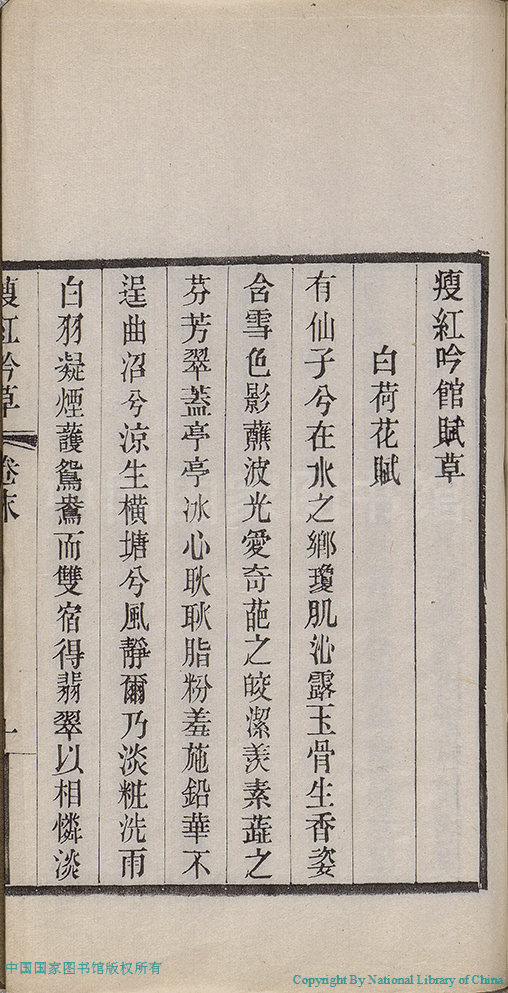 瘦紅吟館賦草
白荷花賦
有仙子兮在水之鄉瓊肌沁露玉骨生香姿
含雪色影蘸波光愛奇葩之皎潔羨素蕋之
芬芳翠蓋亭亭冰心耿耿脂粉羞施鉛華不
逞曲沼兮涼生橫塘兮風靜爾乃淡粧洗雨
白羽凝煙護鴛鴦而雙宿得翡翠以相憐淡
瘦紅吟草
卷末
一
中国国家图书馆版权所有
Copyright By National Library of China